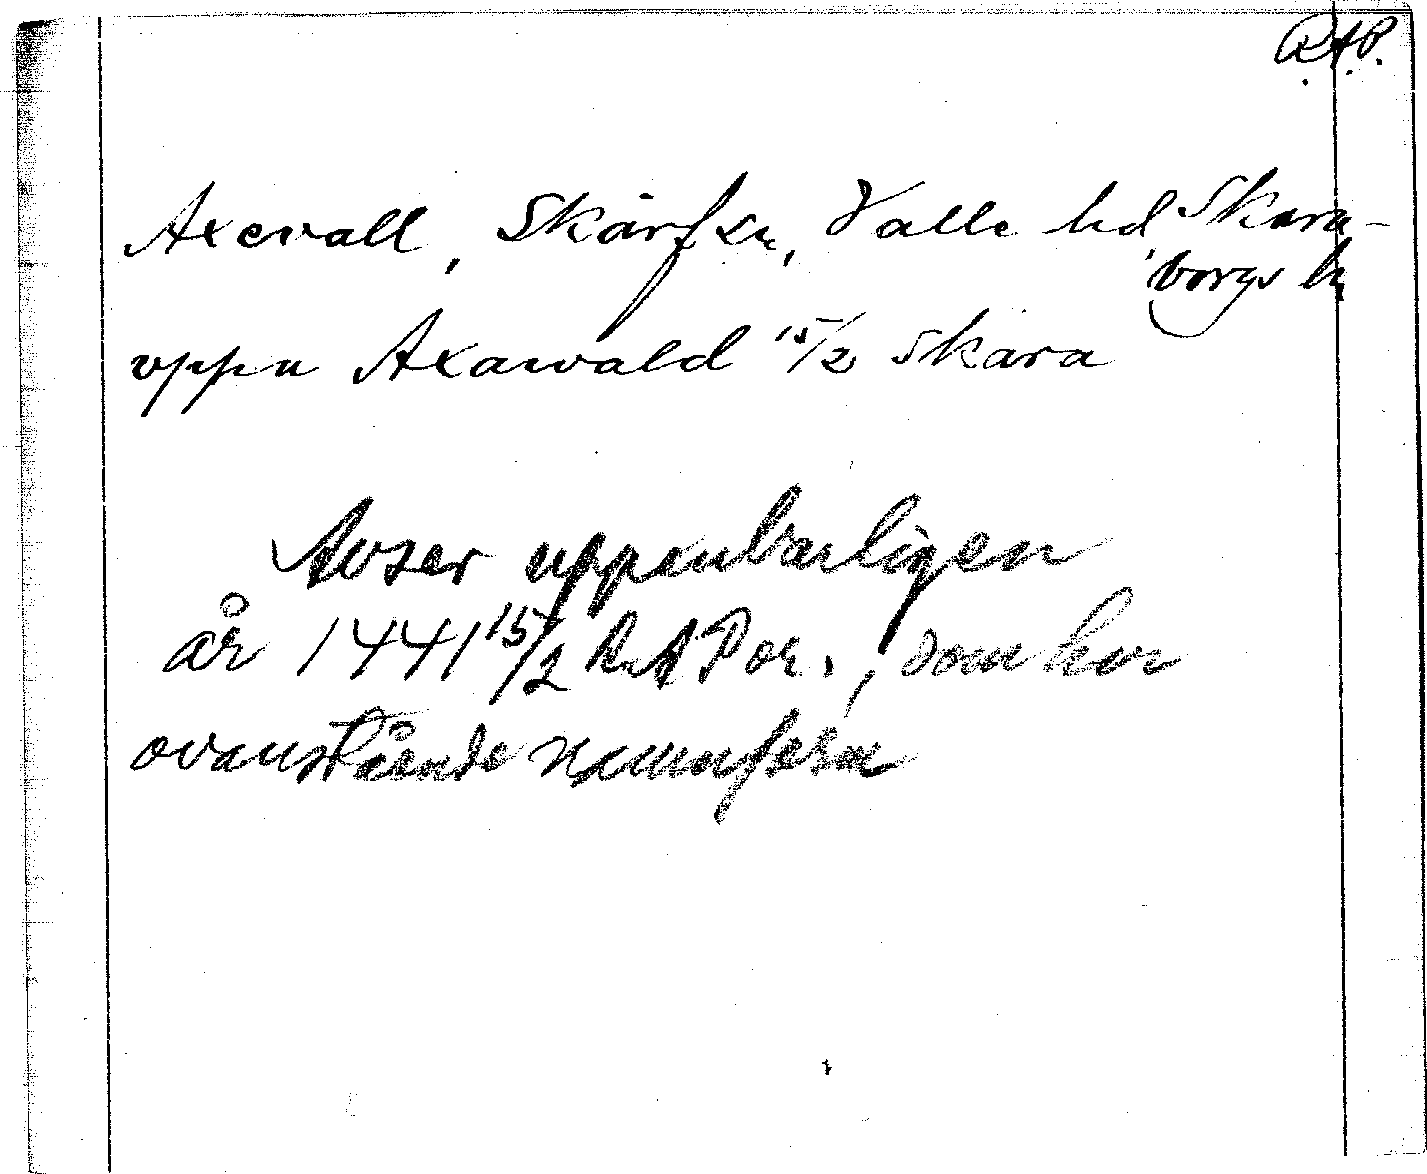 R.A.P.
Axevall, Skärf sn, Valle hd, Skara-
borgs l.
uppa Axawald 15/2 Skara
Avser uppenbarligen
år 1441 15/2 RAP or., som har
ovanstående namnform